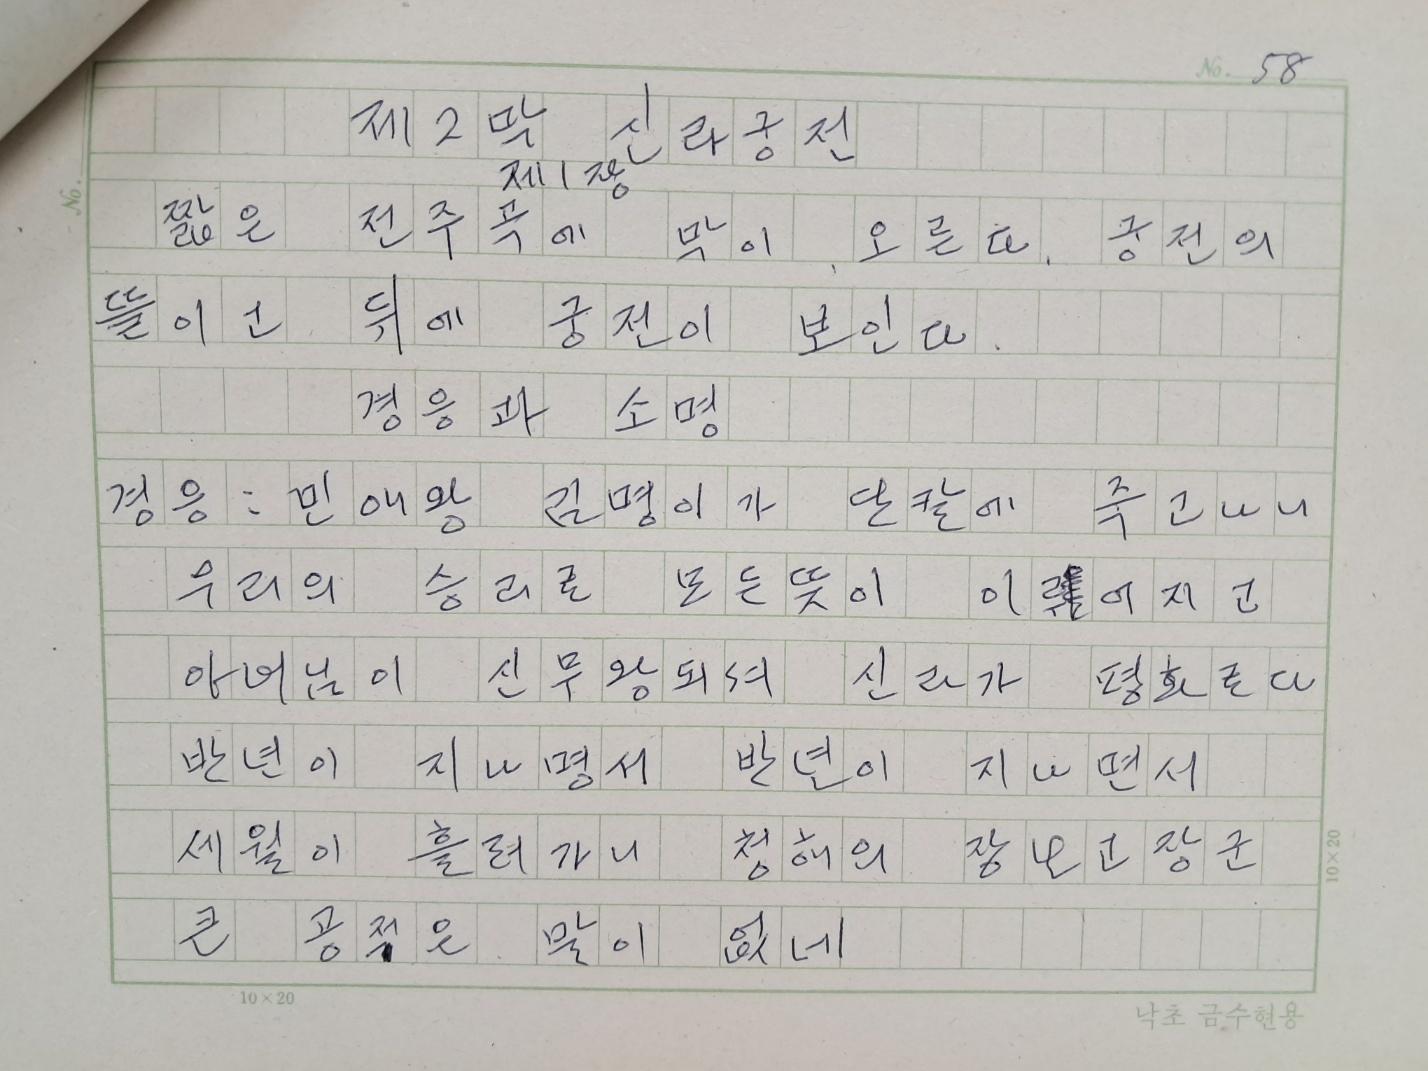 No. 58
제2막 신라궁전
제1장
No.
짧은 전주곡에 막이 오른다. 궁전의
뜰이고 뒤에 궁전이 보인다.
경응과 소명
경응: 민애왕 김명이가 단칼에 죽고나니
우리의 승리로 모든뜻이 이루어지고
아버님이 신무왕되셔 신라가 평화롭다
반년이 지나명서 반년이 지나면서
세월이 흘러가니 청해의 장보고장군
큰 공적은 말이 없네
10×20
10×20
낙초 금수현용